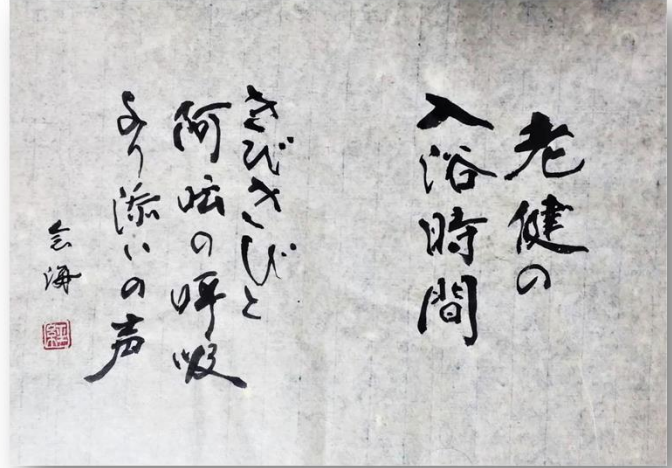 老健の
入浴時間
きびきびと
阿吽の呼吸
より添いの声